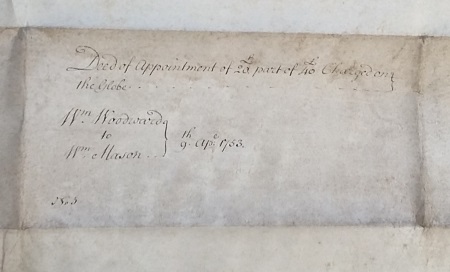 Deed of Appointment of 20£ part of 40£ Charged on
the Globe
Wm Woodward
to
Wm Mason
9th Apl 1753.
No 5